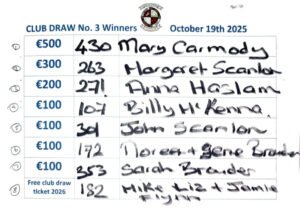 CLUB DRAW No. 3 Winners October 19th 2025
① €500 430 Mary Carmody
② €300 263 Margaret Scanlon
③ €200 271 Anna Haslam
④ €100 107 Billy McKenna
⑤ €100 301 John Scanlon
⑥ €100 172 Noreen + Gene Browder
⑦ €100 353 Sarah Browder
⑧ Free club draw ticket 2026 182 Mike Liz + Jamie Flynn